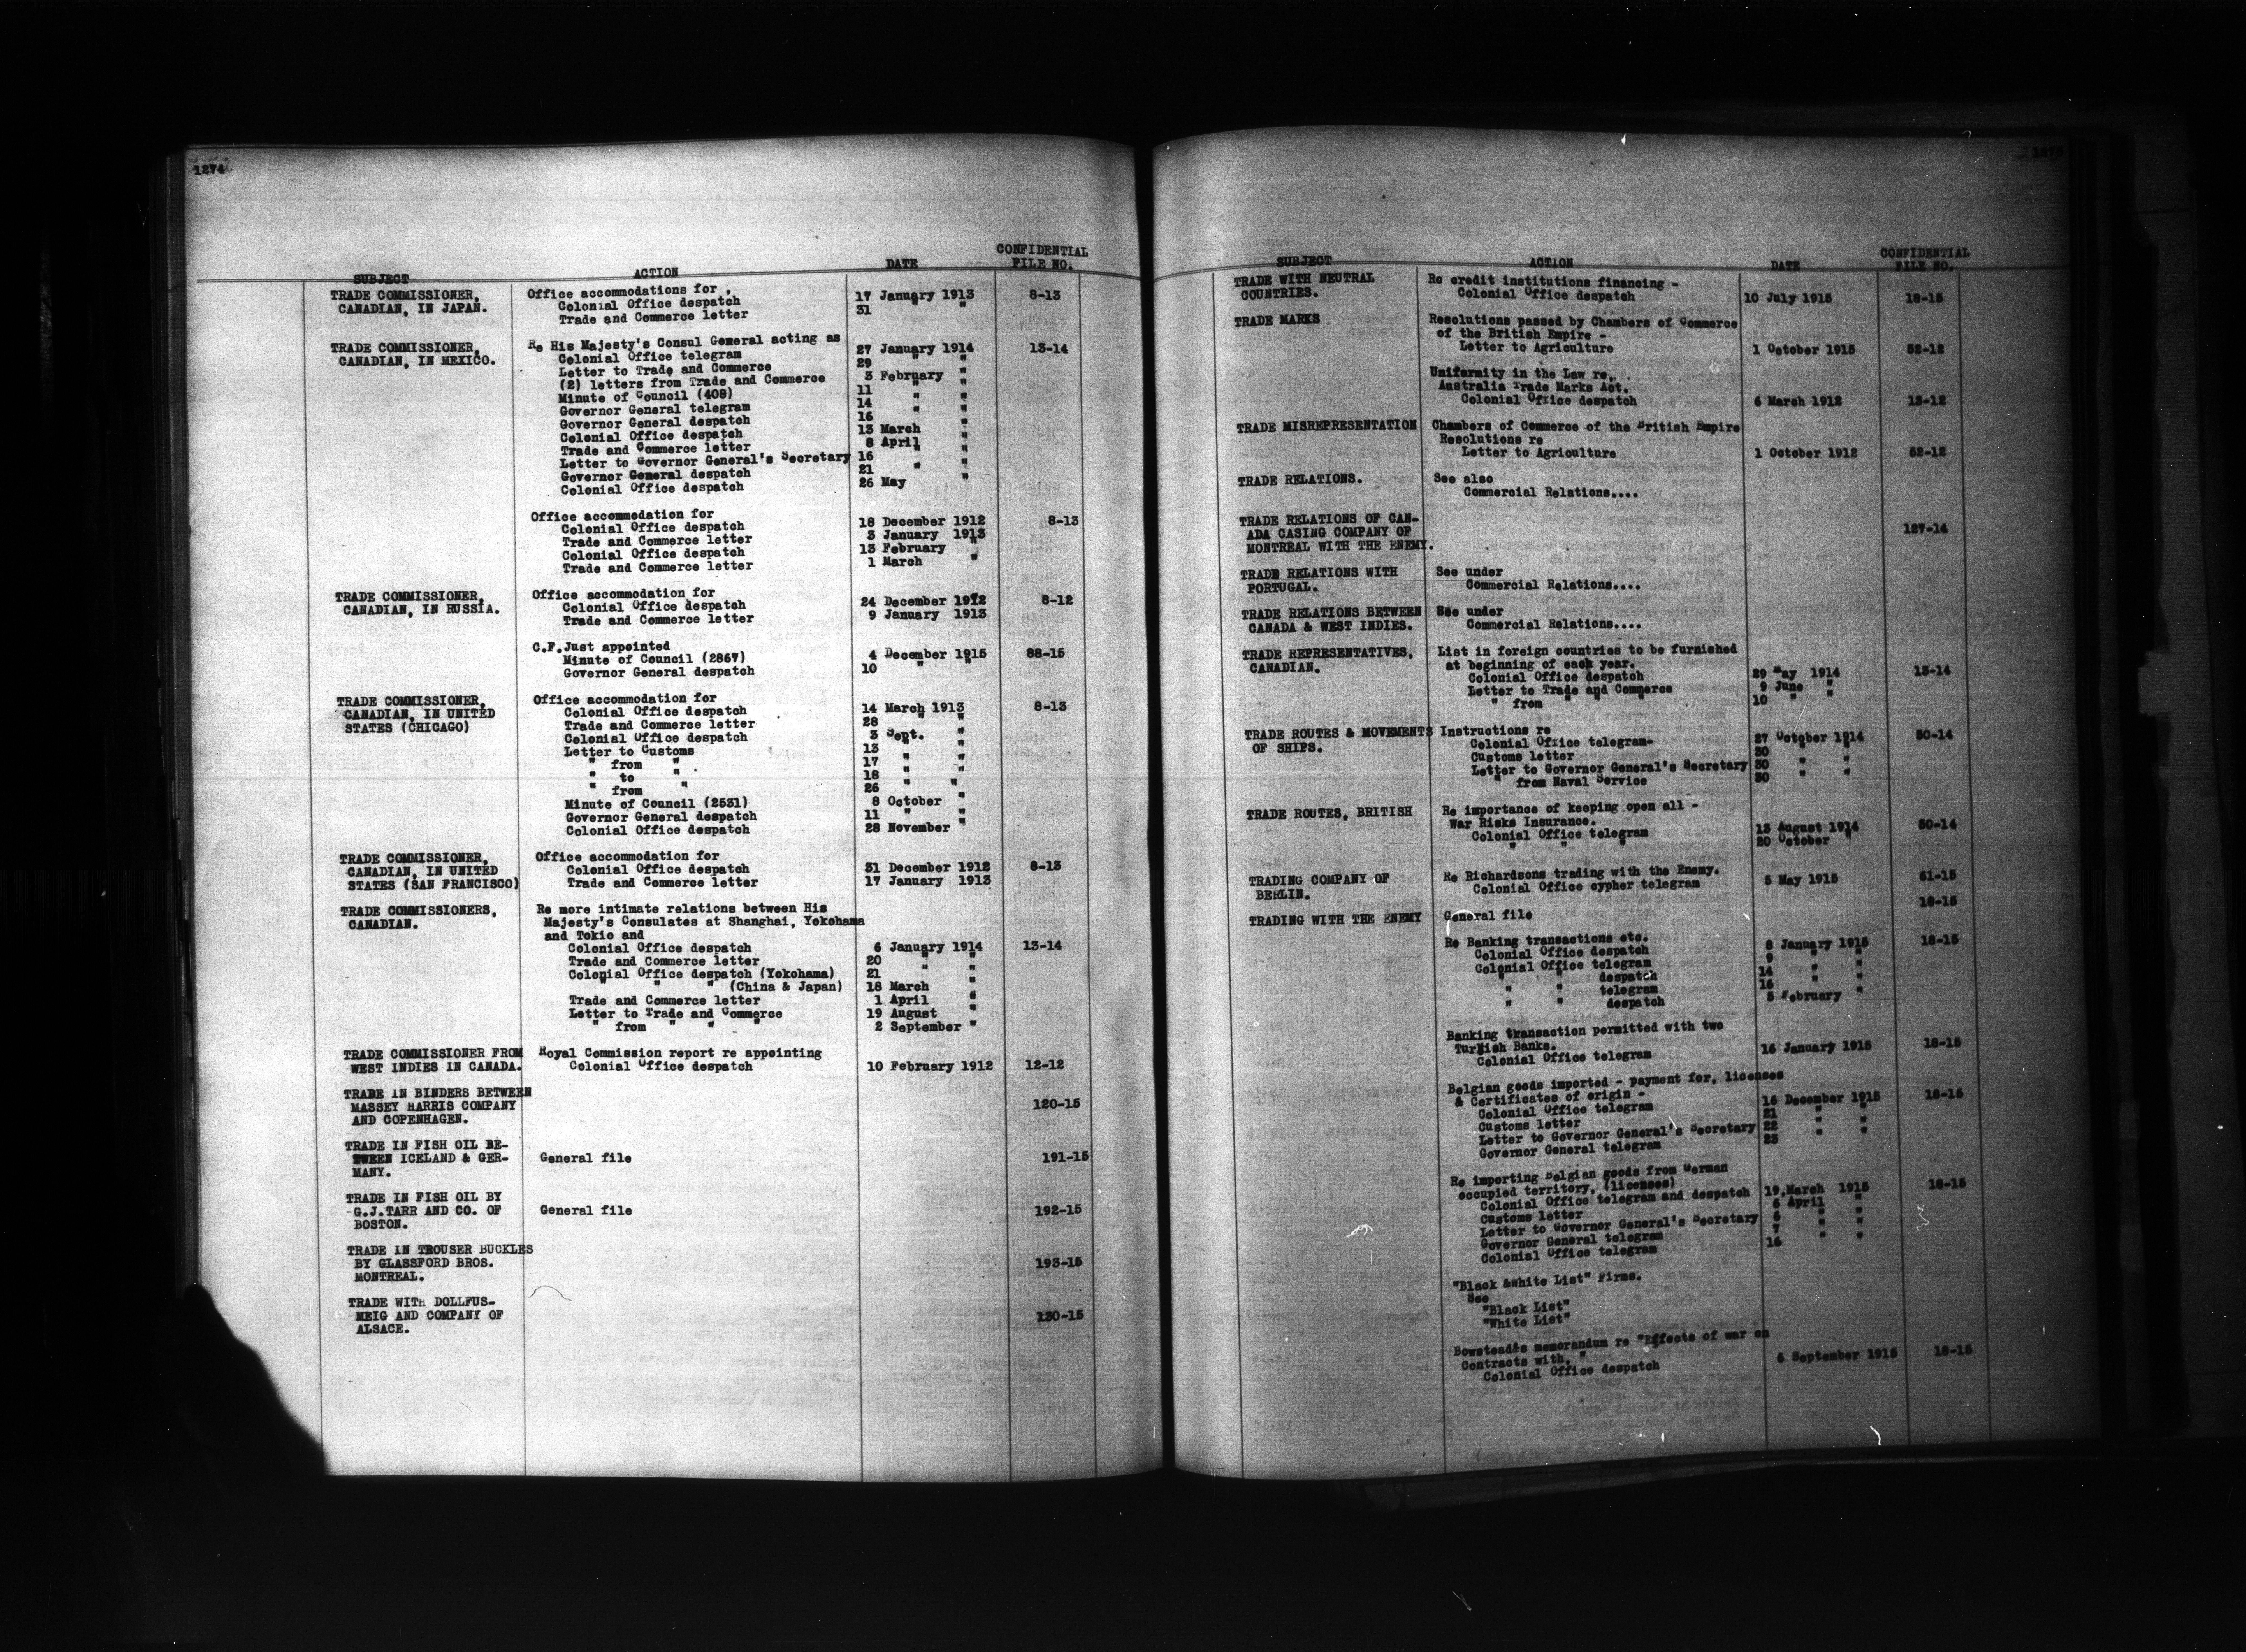 1274
SUBJECT ACTION DATE CONFIDENTIAL FILE NO.
TRADE COMMISSIONER, Office accommodations for .
CANADIAN, IN JAPAN. Colonial Office despatch 17 January 1913 8-13
Trade and Commerce letter 31 " "
TRADE COMMISSIONER, Re His Majesty's Consul General acting as
CANADIAN, IN MEXICO. Colonial Office telegram 27 January 1914 13-14
Letter to Trade and Commerce 29 " "
(2) letters from Trade and Commerce 3 February "
Minute of Council (408) 11 " "
Governor General telegram 14 " "
Governor General despatch 16 "
Colonial Office despatch 13 March "
Trade and Commerce letter 8 April "
Letter to Governor General's Secretary 16 " "
Governor General despatch 21 " "
Colonial Office despatch 26 May "
Office accommodation for
Colonial Office despatch 18 December 1912 8-13
Trade and Commerce letter 3 January 1913
Colonial Office despatch 13 February "
Trade and Commerce letter 1 March "
TRADE COMMISSIONER, Office accommodation for
CANADIAN, IN RUSSIA. Colonial Office despatch 24 December 1912 8-12
Trade and Commerce letter 9 January 1913
C.F.Just appointed
Minute of Council (2867) 4 December 1915 88-15
Governor General despatch 10 " "
TRADE COMMISSIONER, Office accommodation for
CANADIAN, IN UNITED Colonial Office despatch 14 March 1913 8-13
STATES (CHICAGO) Trade and Commerce letter 28 " "
Colonial Office despatch 3 Sept. "
Letter to Customs 13 " "
" from " 17 " "
" to " 18 " "
" from " 26 " "
Minute of Council (2531) 8 October "
Governor General despatch 11 " "
Colonial Office despatch 28 November "
TRADE COMMISSIONER, Office accommodation for
CANADIAN, IN UNITED Colonial Office despatch 31 December 1912 8-13
STATES (SAN FRANCISCO) Trade and Commerce letter 17 January 1913
TRADE COMMISSIONERS, Re more intimate relations between His
CANADIAN. Majesty's Consulates at Shanghai, Yokohama
and Tokio and
Colonial Office despatch 6 January 1914 13-14
Trade and Commerce letter 20 " "
Colonial Office despatch (Yokohama) 21 " "
" " " (China & Japan) 18 March "
Trade and Commerce letter 1 April "
Letter to Trade and Commerce 19 August "
" from " " " 2 September "
TRADE COMMISSIONER FROM Royal Commission report re appointing
WEST INDIES IN CANADA. Colonial Office despatch 10 February 1912 12-12
TRADE IN BINDERS BETWEEN
MASSEY HARRIS COMPANY 120-15
AND COPENHAGEN.
TRADE IN FISH OIL BE-
TWEEN ICELAND & GER- General file 191-15
MANY.
TRADE IN FISH OIL BY
G.J.TARR AND CO. OF General file 192-15
BOSTON.
TRADE IN TROUSER BUCKLES
BY GLASSFORD BROS. 193-15
MONTREAL.
TRADE WITH DOLLFUS-
MEIG AND COMPANY OF 130-15
ALSACE.
SUBJECT ACTION DATE CONFIDENTIAL FILE NO.
TRADE WITH NEUTRAL Re credit institutions financing -
COUNTRIES. Colonial Office despatch 10 July 1915 18-15
TRADE MARKS Resolutions passed by Chambers of Commerce
of the British Empire -
Letter to Agriculture 1 October 1915 52-12
Uniformity in the Law re.
Australia Trade Marks Act.
Colonial Office despatch 6 March 1912 13-12
TRADE MISREPRESENTATION Chambers of Commerce of the British Empire
Resolutions re
Letter to Agriculture 1 October 1912 52-12
TRADE RELATIONS. See also
Commercial Relations....
TRADE RELATIONS OF CAN-
ADA CASING COMPANY OF 127-14
MONTREAL WITH THE ENEMY.
TRADE RELATIONS WITH See under
PORTUGAL. Commercial Relations....
TRADE RELATIONS BETWEEN See under
CANADA & WEST INDIES. Commercial Relations....
TRADE REPRESENTATIVES, List in foreign countries to be furnished
CANADIAN. at beginning of each year.
Colonial Office despatch 29 May 1914 13-14
Letter to Trade and Commerce 9 June "
" from " " " 10 " "
TRADE ROUTES & MOVEMENTS Instructions re
OF SHIPS. Colonial Office telegram- 27 October 1914 50-14
Customs letter 30 " "
Letter to Governor General's Secretary 30 " "
" from Naval Service 30 " "
TRADE ROUTES, BRITISH Re importance of keeping open all -
War Risks Insurance.
Colonial Office telegram 13 August 1914 50-14
" " " 20 October "
TRADING COMPANY OF Re Richardsons trading with the Enemy.
BERLIN. Colonial Office cypher telegram 5 May 1915 61-15
TRADING WITH THE ENEMY General file 18-15
Re Banking transactions etc.
Colonial Office despatch 8 January 1915 18-15
Colonial Office telegram 9 " "
" " despatch 14 " "
" " telegram 15 " "
" " despatch 5 February "
Banking transaction permitted with two
Turkish Banks.
Colonial Office telegram 16 January 1915 18-15
Belgian goods imported - payment for, licenses
& Certificates of origin -
Colonial Office telegram 16 December 1915 18-15
Customs letter 21 " "
Letter to Governor General's Secretary 22 " "
Governor General telegram 23 " "
Re importing Belgian goods from German
occupied territory, (licenses)
Colonial Office telegram and despatch 19 March 1915 18-15
Customs letter 6 April "
Letter to Governor General's Secretary 6 " "
Governor General telegram 7 " "
Colonial Office telegram 16 " "
"Black &White List" Firms.
See
"Black List"
"White List"
Bowstead's memorandum re "Effects of war on
Contracts with, "
Colonial Office despatch 6 September 1915 18-15